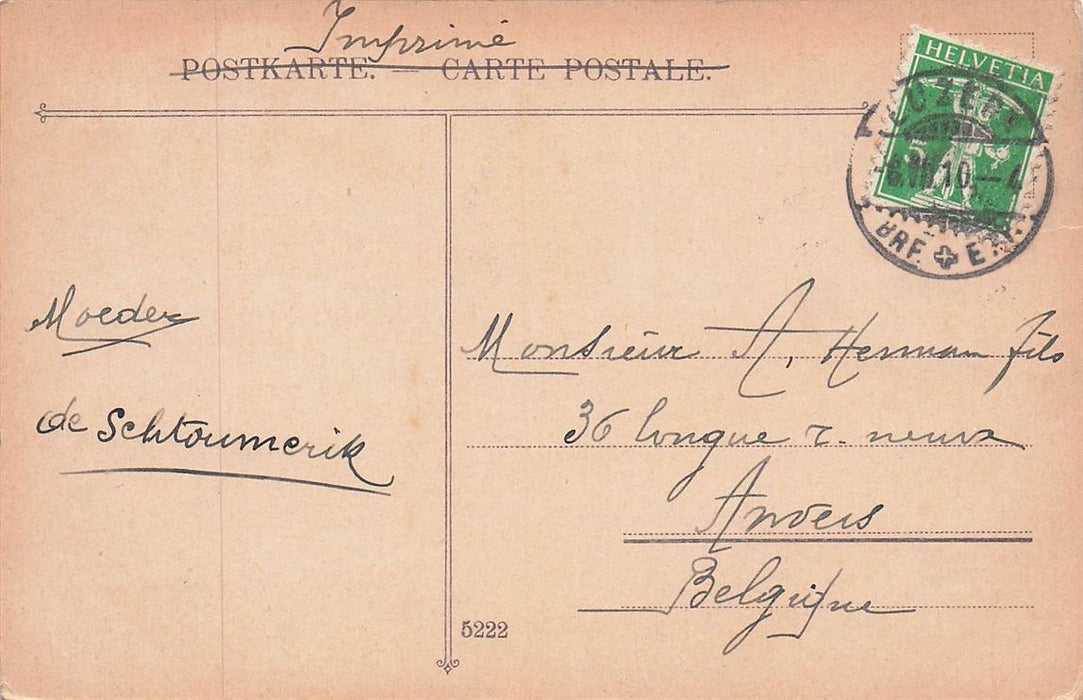 Imprimé
POSTKARTE. — CARTE POSTALE.
HELVETIA
5
LUZERN
10 — 4
BRF. EXP.
Moeder
de Schtoumerik
Monsieur A. Herman fils
36 longue r. neuve
Anvers
Belgique
5222